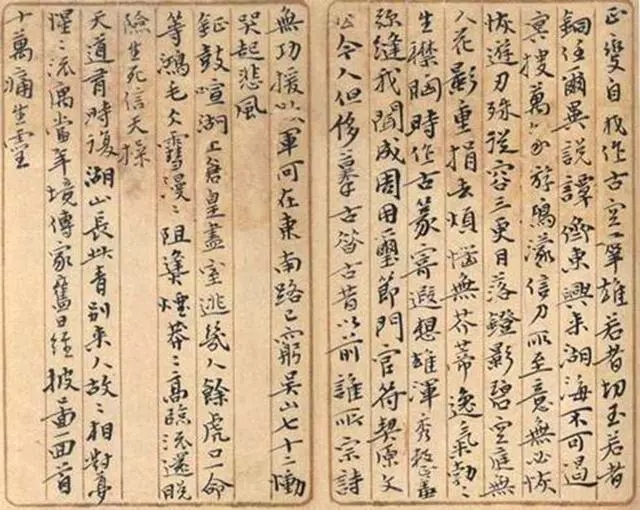 正變自我作古空羣雄若者切玉若者
銅任爾異說譚齊東興來湖海不可遏
冥搜萬象游鴻濛信刀所至意無必恢
恢遊刃殊從容三更月落鐙影碧空庭無
人花影重捐去煩惱無芥蒂逸氣勃勃
生襟胸時作古篆寄遐想雄渾秀
彌縫我聞成周用璽節門官符契原文
公令人但侈摹古昔古昔以前誰所宗詩
無功援以軍何在東南路已窮吳山七十二慟
哭起悲風
鉦鼓喧湖上倉皇盡室逃幾人餘虎口一命
等鴻毛大雪漫漫阻蓬煙莽莽高臨流還脫
險生死信天操
天道有時復湖山長此青別來人故故相對夢
惺惺流寓當年境傳家舊日經披圖一回首
十萬痛生靈